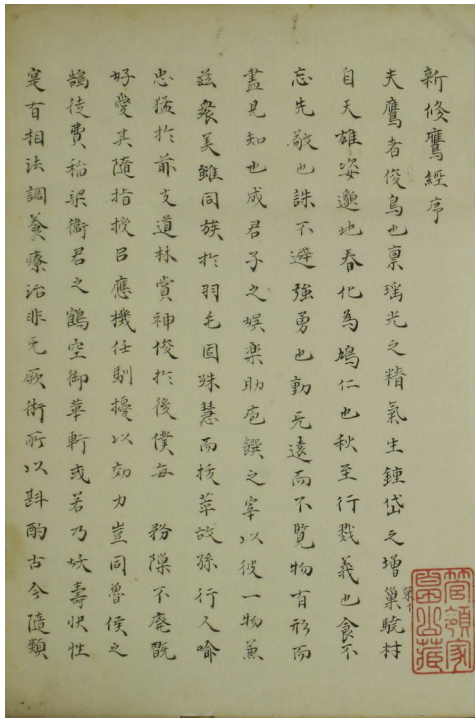 新修鷹經序
夫鷹者俊鳥也禀瑶光之精氣生鍾岱之增巢驍材
自天雄姿邈地春化為鳩仁也秋至行戮義也食不
忘先敬也誅不避強勇也動无遠而不覽物有形而
盡見知也成君子之娯楽助庖饌之宰以彼一物兼
兹衆美雖同族於羽毛固殊慧而拔萃故孫行人喻
忠猛於前支道林賞神俊於後僕毎 務隟不廃翫
好愛其隨指授呂應機任馴擾以効力豈同魯侯之
鵠徒費稲梁衞君之鶴空御華軒或若乃妖壽快性
寔百相法調養療治非无厥術所以斟酌古今隨類